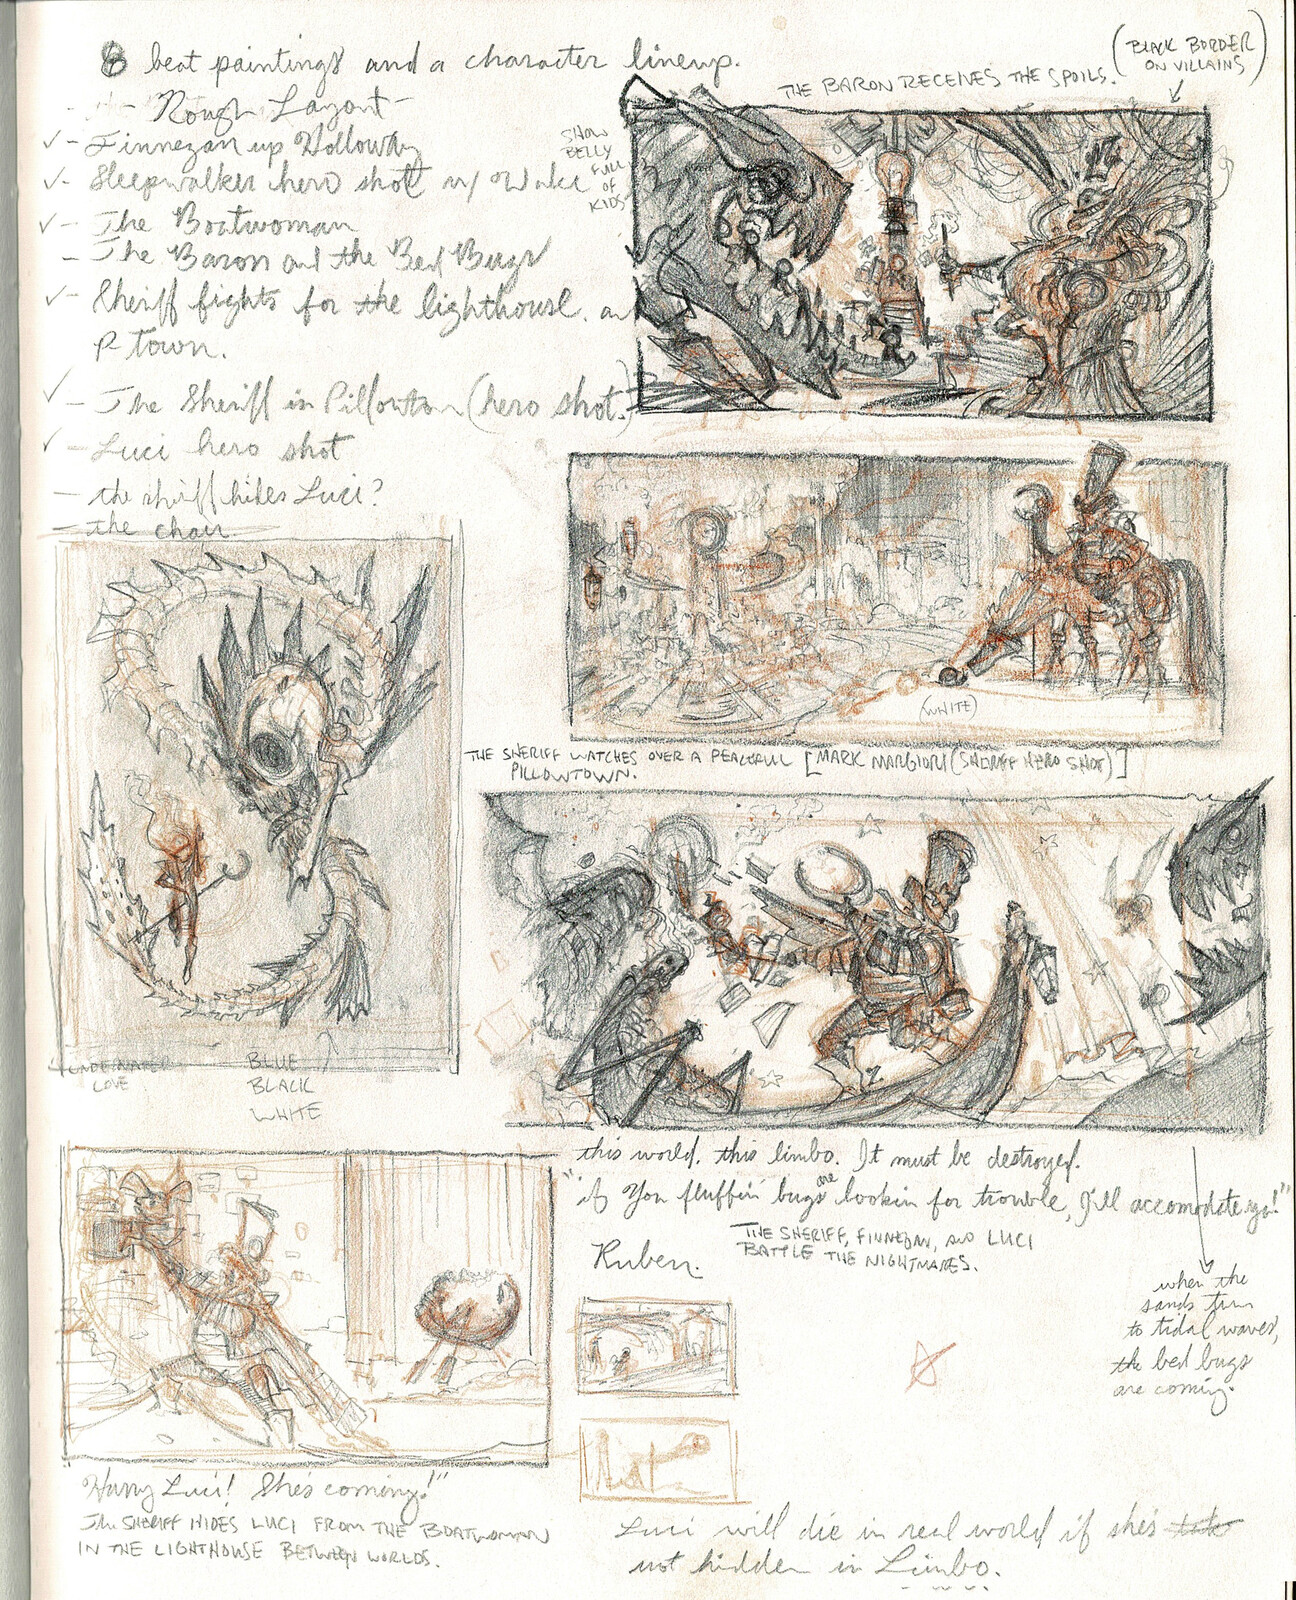 8 beat paintings and a character lineup.
- Rough Layout -
✓ - Finnegan up Holloway
✓ - Sleepwalker hero shot w/ Wake
✓ - The Boatwoman
- The Baron and the Bed Bugs
✓ - Sheriff fights for the lighthouse. an
P town.
✓ - The Sheriff in Pillowtown (hero shot.)
✓ - Luci hero shot
- the sheriff hides Luci?
- the chair
SHOW
BELLY
FULL
OF
KIDS
THE BARON RECEIVES THE SPOILS.
(BLACK BORDER
ON VILLAINS)
(WHITE)
THE SHERIFF WATCHES OVER A PEACEFUL [MARK MARGIORI (SHERIFF HERO SHOT)]
PILLOWTOWN.
UNDERWATER
LOVE
BLUE
BLACK
WHITE
this world. this limbo. It must be destroyed.
"if you fluffin' bugs are lookin for trouble, I'll accomodate ya!"
THE SHERIFF, FINNEGAN, AND LUCI
BATTLE THE NIGHTMARES.
Ruben.
when the
sands turn
to tidal waves,
the bed bugs
are coming.
"Hurry Luci! She's coming!"
THE SHERIFF HIDES LUCI FROM THE BOATWOMAN
IN THE LIGHTHOUSE BETWEEN WORLDS.
Luci will die in real world if she's
not hidden in Limbo.